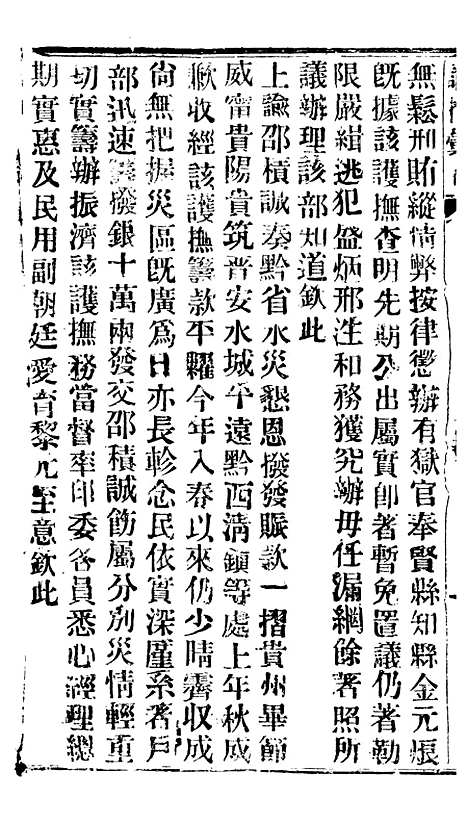 無鬆刑賄縱情弊按律懲辦有獄官奉賢縣知縣金元烺
旣據該護撫查明先期公出屬實卽著暫免置議仍著勒
限嚴緝逃犯盛炳邢泩和務獲究辦毋任漏網餘著照所
議辦理該部知道欽此
上諭邵積誠奏黔省水災懇恩撥發賑款一摺貴州畢節
威甯貴陽貴筑晋安水城平遠黔西淸鎮等處上年秋成
歉收經該護撫籌款平糶今年入春以來仍少晴霽收成
尙無把握災區旣廣爲日亦長軫念民依實深廑系著戶
部汛速籌撥銀十萬兩發交邵積誠飭屬分別災情輕重
切實籌辦振濟該護撫務當督率印委各員悉心經理總
期實惠及民用副朝廷愛育黎元至意欽此